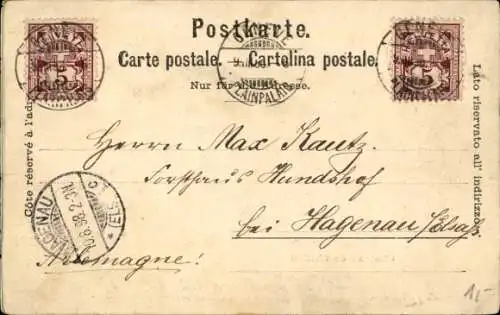 Postkarte.
Carte postale. Cartolina postale.
Nur für die Adresse.
Côte réservé à l'adr
Lato riservato all' indirizzo.
GENÈVE
5
GENÈVE
PLAINPALAIS
5
Herrn Max Kautz.
Forsthaus Hundshof
bei Hagenau (Elsaß)
Allemagne!
HAGENAU
10.6.98. 2-3N.
(ELS.)
1,-